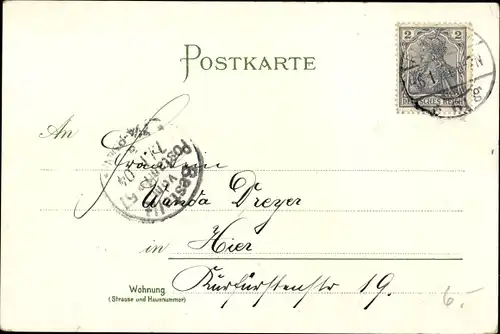 POSTKARTE
2
DEUTSCHES REICH
An
Fräulein
Bestellt
vom
Postamte 57
Wanda Dreyer
in Hier
Kurfürstenstr 19.
Wohnung
(Strasse und Hausnummer)
6.-